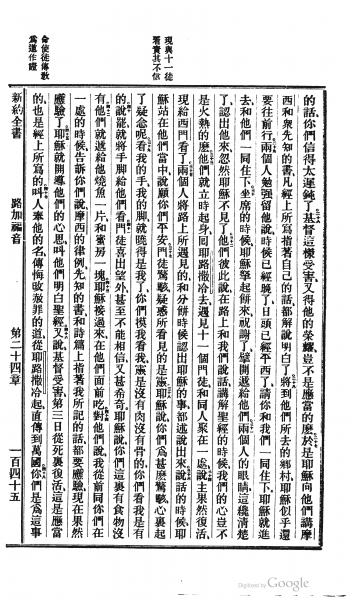 現與十一徒
看責其不信
命使徒傳教
爲道作證
的話、你們信得太遲鈍了、基督這樣受害、又得他的榮耀、豈不是應當的麽、於是耶穌向他們講摩
西和衆先知的書、凡經上所寫指著自己的話、都解說明白了、將到他們所去的鄉村、耶穌似乎還
要往前行、兩個人勉强他說、時候已經晚了、日頭已經平西了、請你和我們一同住下、耶穌就進
去和他們一同住下、坐席的時候、耶穌擧起餅來、祝謝了、擘開遞給他們、兩個人的眼睛、這纔清楚
了、認出他來、忽然耶穌不見了、他們彼此說、在路上和我們說話、講解聖經的時候、我們的心豈不
是火熱的麽、他們就立時起身、囘耶路撒冷去、遇見十一個門徒和同人聚在一處、說、主果然復活、
現給西門看了、兩個人將路上所遇見的、和分餅時候認出耶穌的事、都述說出來、說話的時候、耶
穌站在他們當中、說、願你們平安、門徒驚駭疑惑、所看見的是靈、耶穌說、你們爲甚麽驚駭、心裏起
了疑念呢、看我的手、我的脚、就曉得是我了、你們摸我看我、靈是沒有肉沒有骨的、你們看我是有
的、說罷、就將手脚給他們看、門徒喜出望外、甚至不能相信、又甚希奇、耶穌說、你們這裏有食物沒
有、他們就遞給他燒魚一片、和蜜房一塊、耶穌接過來、在他們面前吃、對他們說、我從前同你們在
一處的時候、告訴你們說、摩西的律例、先知的書、和詩篇上、指著我所記的話、都要應驗、現在果然
應驗了、耶穌就開導他們的心思、叫他們明白聖經、又說、基督受害、第三日從死裏復活、這是應當
的、也是經上所寫的、叫人奉他的名、傳悔改赦罪的道、從耶路撒冷起、直傳到萬國、你們是爲這事
新約全書 路加福音 第二十四章 一百四十五
Digitized by Google